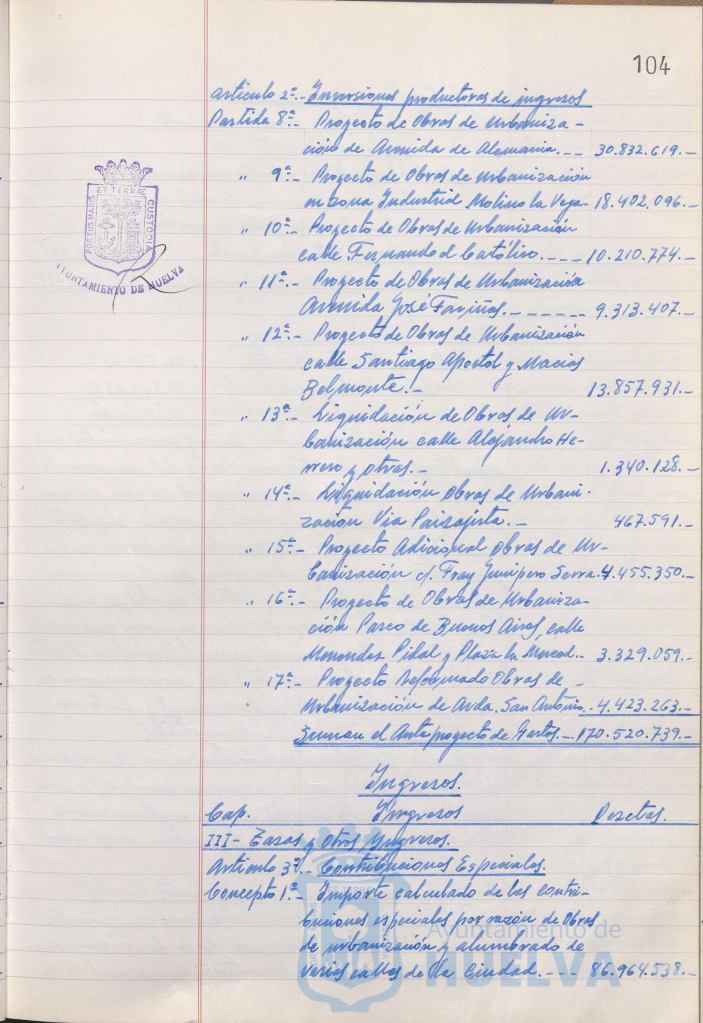 104
Artículo 2º.- Inversiones productoras de ingresos
Partida 8ª.- Proyecto de Obras de Urbaniza-
ción de Avenida de Alemania.--- 30.832.619.-
" 9ª.- Proyecto de Obras de Urbanización
en zona Industrial Molino la Vega- 18.402.096.-
" 10ª.- Proyecto de Obras de Urbanización
calle Fernando el Católico.---- 10.210.774.-
" 11ª.- Proyecto de Obras de Urbanización
Avenida José Fariñas.------ 9.313.407.-
" 12ª.- Proyecto de Obras de Urbanización
calle Santiago Apostol y Macías
Belmonte.- 13.857.931.-
" 13ª.- Liquidación de Obras de Ur-
banización calle Alejandro He-
rrero y otras.- 1.340.128.-
" 14ª.- Liquidación Obras de Urbani-
zación Vía Paisajista.- 467.591.-
" 15ª.- Proyecto Adicional Obras de Ur-
banización c/. Fray Junípero Serra. 4.455.350.-
" 16ª.- Proyecto de Obras de Urbaniza-
ción Paseo de Buenos Aires, calle
Menendez Pidal y Plaza la Merced.. 3.329.059.-
" 17ª.- Proyecto Reformado Obras de -
Urbanización de Avda. San Antonio. 4.423.263.-
Suman el Anteproyecto de Gastos.- 170.520.739.-
Ingresos.
Cap. Ingresos Pesetas.
III- Tasas y Otros Ingresos.
Artículo 3º.- Contribuciones Especiales.
Concepto 1º.- Importe calculado de las contri-
buciones especiales por razón de Obras
de urbanización y alumbrado de
varias calles de la Ciudad.---- 86.964.538.-
PORTUS MARIS ET TERRÆ CUSTODIA
AYUNTAMIENTO DE HUELVA
Ayuntamiento de
HUELVA